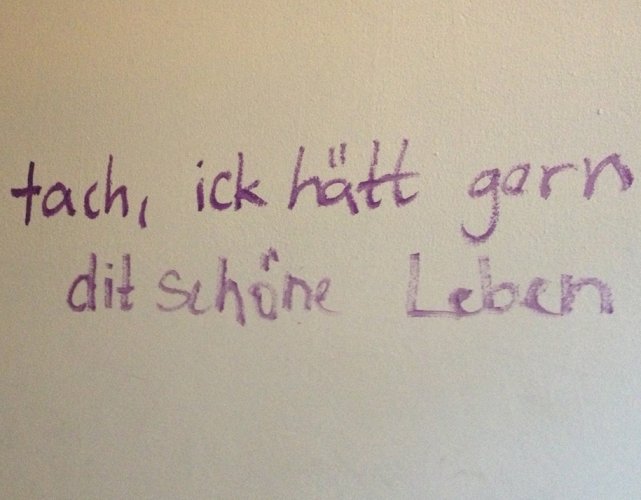 tach, ick hätt gern
dit schöne Leben